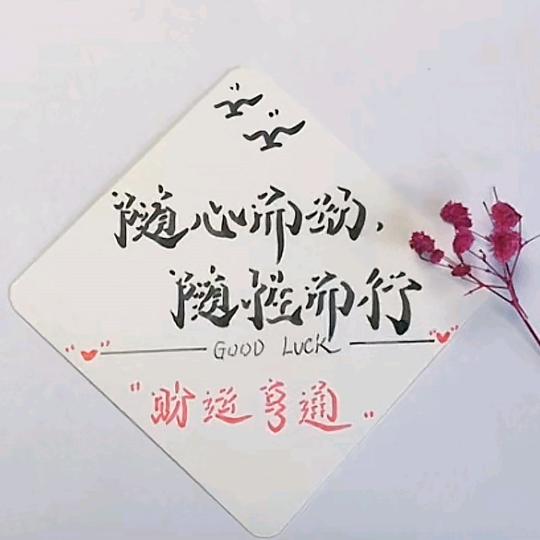 随心而动，
随性而行
GOOD LUCK
"财运亨通"